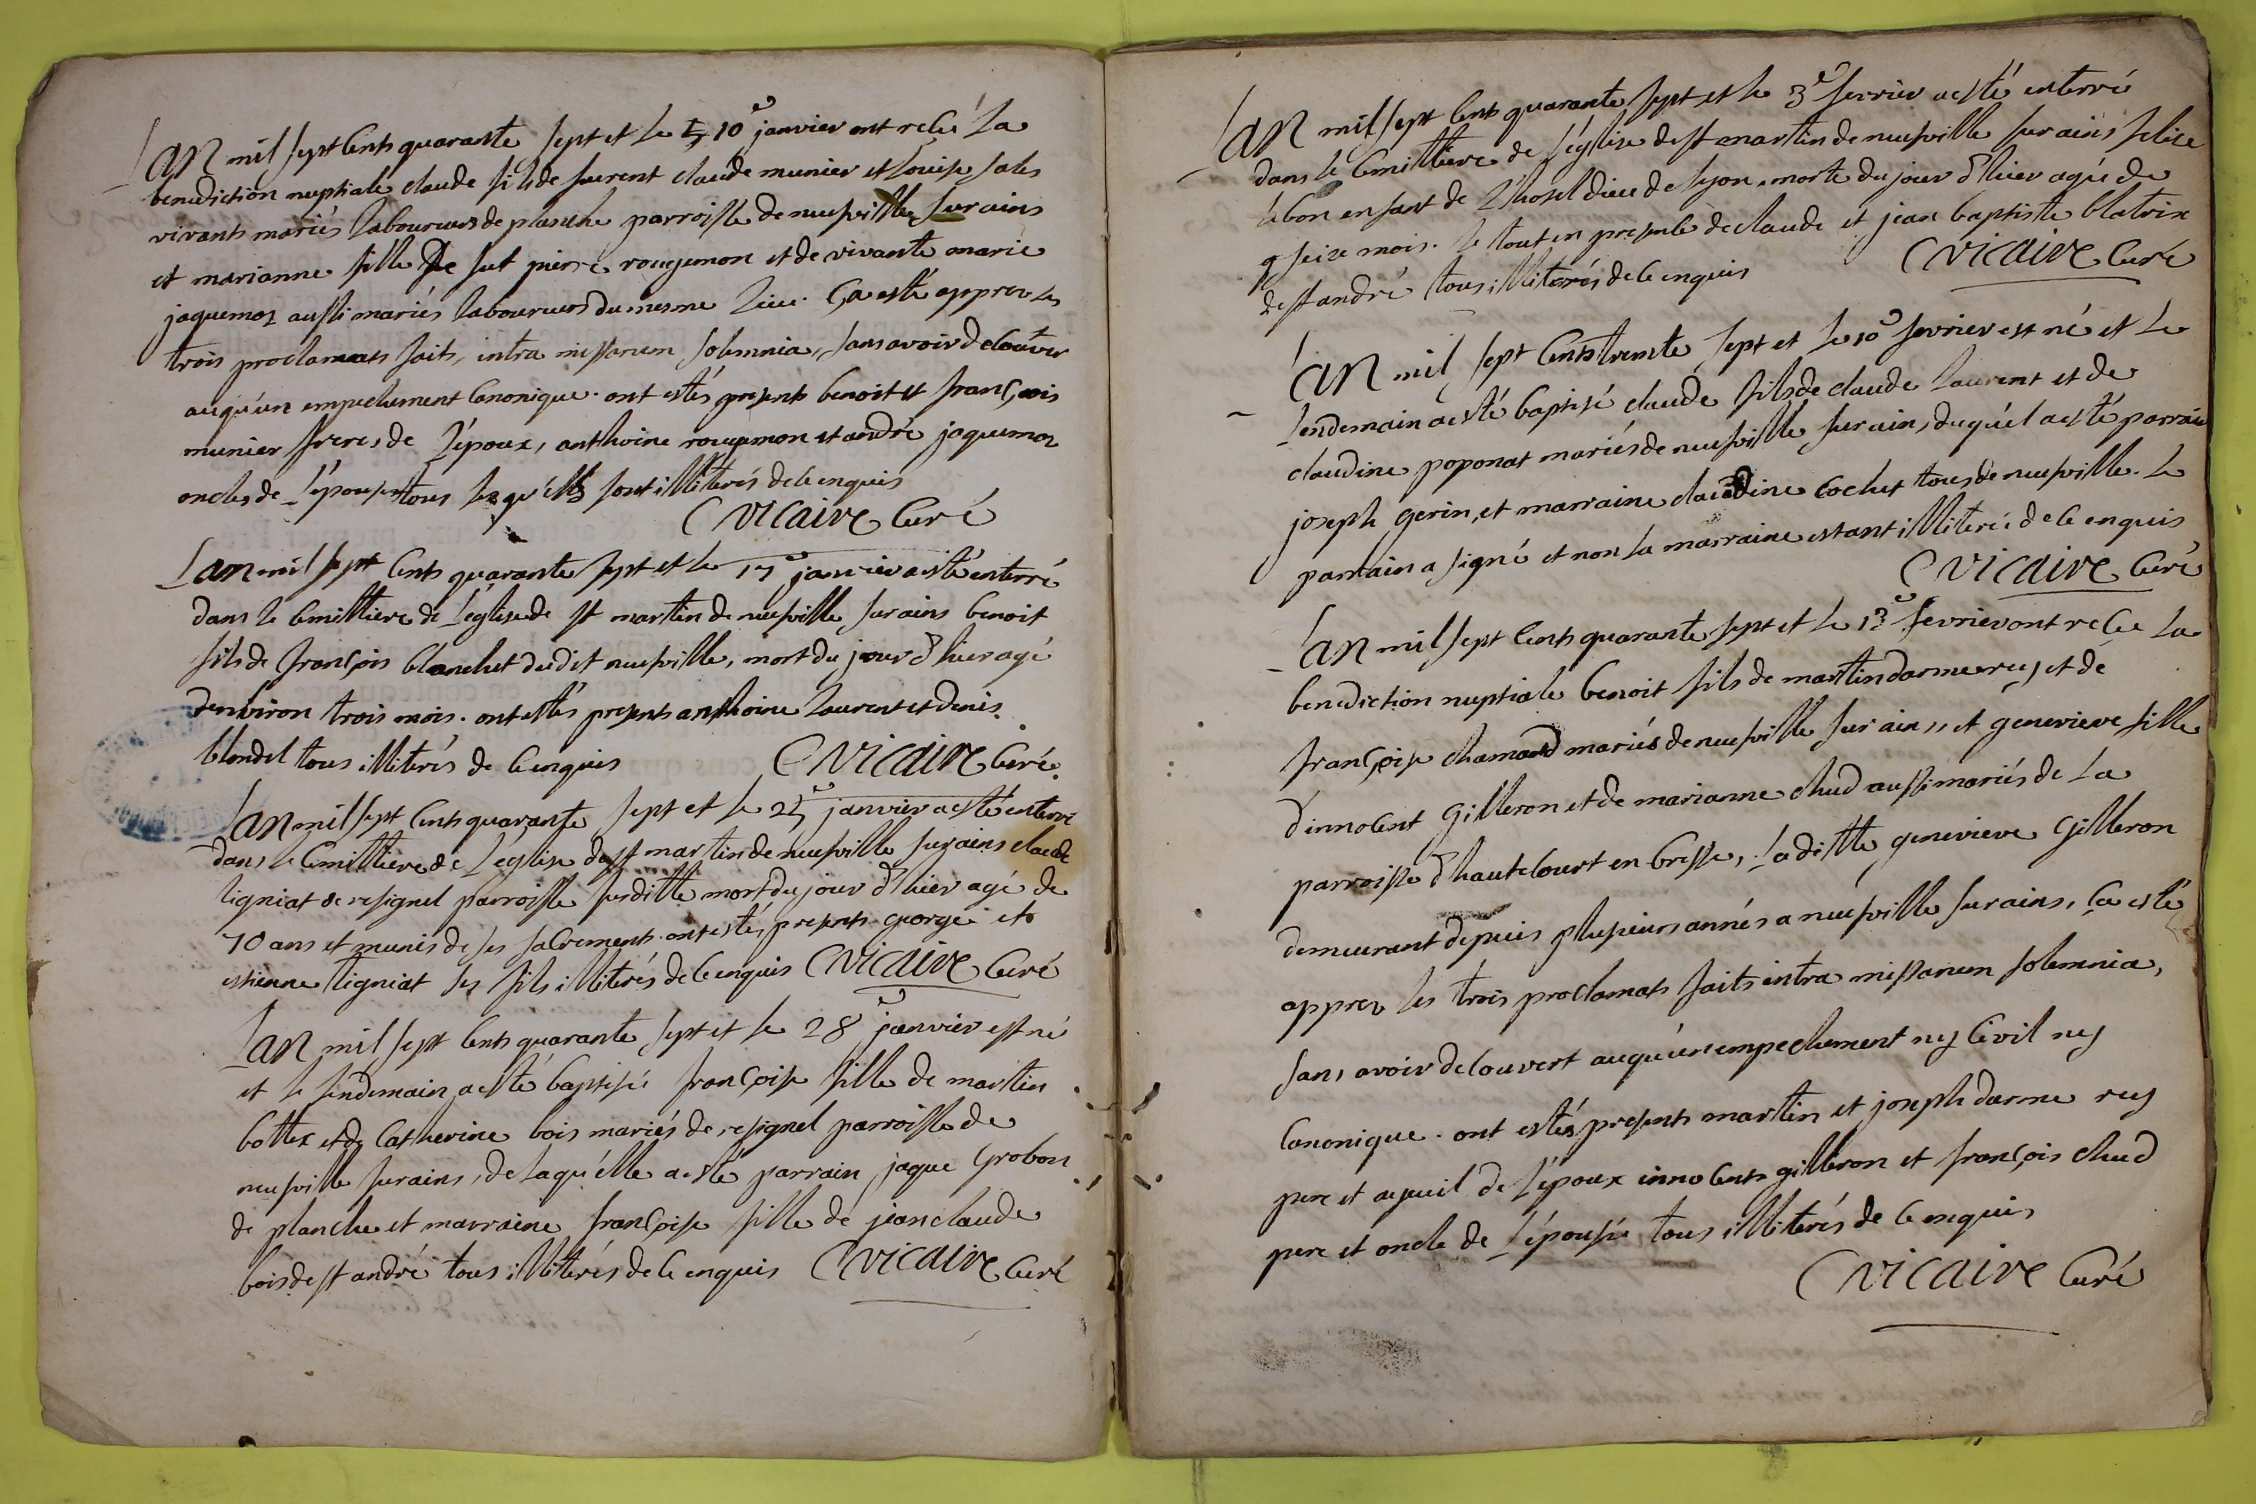 Lan mil sept cents quarante sept et le 10e janvier ont recû la
benediction nuptiale claude fils de laurent claude munier et louise sales
vivants mariés laboureurs de planche parroisse de neufville sur ains
et marianne fille de fut pierre rougemon et de vivante marie
jaquemoz aussi mariés laboureurs du mesme lieu. ça esté apprez les
trois proclamats faits, intra missarum solemnia, sans avoir decouver
auqu'un empechement canonique. ont estés presents benoit et françois
munier freres de l'époux, anthoine rougemon et andré jaquemoz
oncles de l'épouse tous lesqu'els sont illiterés de ce enquis
C vicaire curé
Lan mil sept cents quarante sept et le 17e janvier a esté enterré
dans le cemittiere de l'église de st martin de neufville sur ains benoit
fils de françois blanchet dudit neufville, mort du jour d'hier agé
d'environ trois mois. ont estés presents anthoine laurent et denis
blondel tous illiterés de ce enquis C vicaire curé.
Lan mil sept cents quarante sept et le 25e janvier a esté enterré
dans le cemittiere de l'église de st martin de neufville sur ains claude
ligniat de resignel parroisse susditte mort du jour d'hier agé de
70 ans et munis de ses sacrements. ont estés presents george et
estienne ligniat ses fils illiterés de ce enquis C vicaire curé
Lan mil sept cents quarante sept et le 28e janvier est né
et le lendemain a esté baptisée françoise fille de martin
bottex et de catherine bois mariés de resignel parroisse de
neufville sur ains, de laqu'elle a esté parrain jaque grobon
de planche et marraine françoise fille de jean claude
bois de st andré tous illiterés de ce enquis C vicaire curé
Lan mil sept cents quarante sept et le 3e fevrier a esté enterré
dans le cemittiere de l'église de st martin de neufville sur ains felize
lebon enfant de l'hostel dieu de lyon, morte du jour d'hier agée de
seize mois. le tout en presence de claude et jean baptiste blatrix
de st andré tous illiterés de ce enquis C vicaire curé
Lan mil sept cents trente sept et le 10e fevrier est né et le
lendemain a esté baptisé claude fils de claude laurent et de
claudine poponat mariés de neufville sur ain, duqu'el a esté parrain
joseph gerin, et marraine claudine cochet tous de neufville. le
parrain a signé et non la marraine estant illiterée de ce enquis
C vicaire curé
Lan mil sept cents quarante sept et le 13e fevrier ont recu la
benediction nuptiale benoit fils de martin darmerey et de
françoise chamard mariés de neufville sur ains, et genevieve fille
d'innocent gilleron et de marianne chud aussi mariés de la
parroisse d'hautecourt en bresse, laditte genevieve gilleron
demeurant depuis plusieurs annés a neufville sur ains, ça esté
apprez les trois proclamats faits intra missarum solemnia,
sans avoir decouvert auqu'un empechement ny civil ny
canonique. ont estés presents martin et joseph darme rey
pere et ayeuil de l'époux innocents gilleron et françois chud
pere et oncle de l'épousée tous illiterés de ce enquis
C vicaire curé